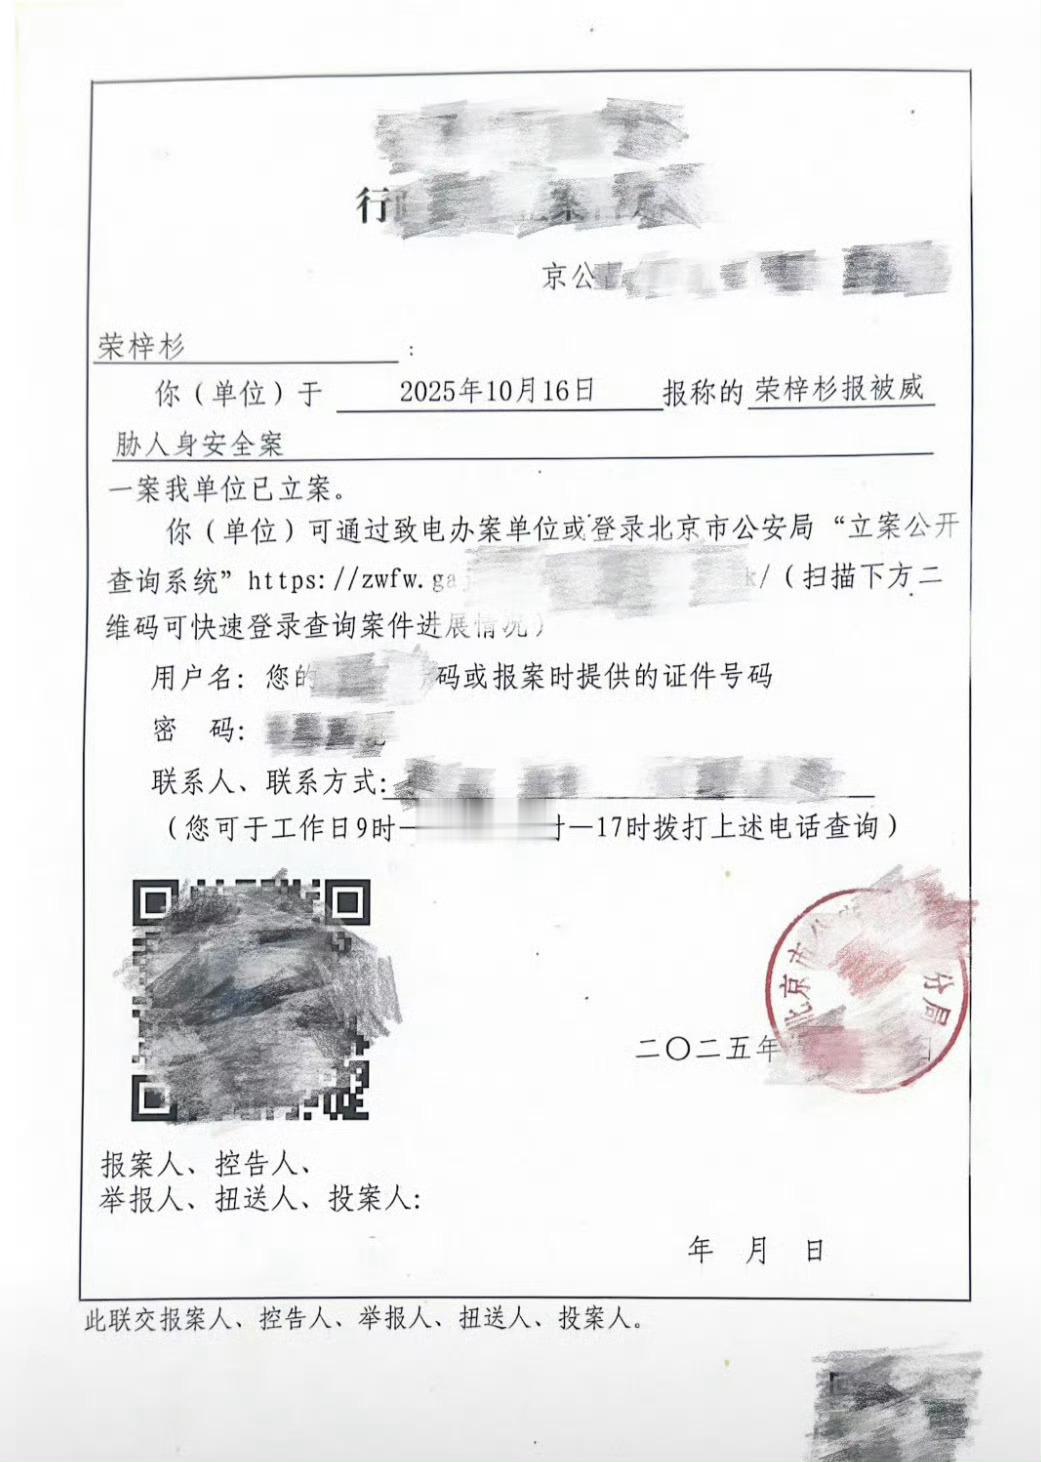 行
京公
荣梓杉 :
你（单位）于 2025年10月16日 报称的 荣梓杉报被威
胁人身安全案
一案我单位已立案。
你（单位）可通过致电办案单位或登录北京市公安局“立案公开
查询系统”https://zwfw.gaj /（扫描下方二
维码可快速登录查询案件进展情况）
用户名：您的 码或报案时提供的证件号码
密 码：
联系人、联系方式:
（您可于工作日9时— 时—17时拨打上述电话查询）
北京市公 分局
二〇二五年
报案人、控告人、
举报人、扭送人、投案人:
年 月 日
此联交报案人、控告人、举报人、扭送人、投案人。